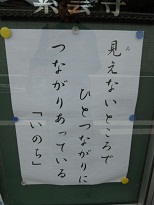 見えないところで
ひとつながりに
つながりあっている
「いのち」